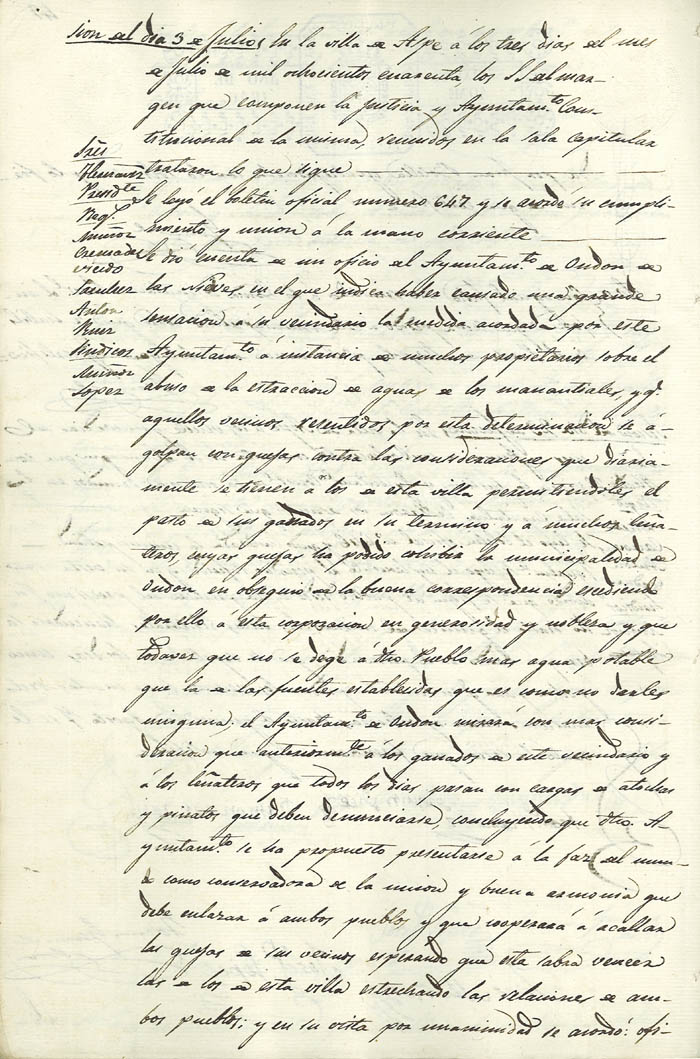 sion del dia 3 de Julio En la villa de Aspe á los tres dias del mes
de Julio de mil ochocientos cuarenta, los SS del mar-
gen que componen la Justicia y Ayuntam.to Cons-
titucional de la misma, reunidos en la sala capitular
trataron lo que sigue
Se leyó el boletin oficial numero 647 y se acordó su cumpli-
miento y union á la mano corriente
Se dió cuenta de un oficio del Ayuntam.to de Ondon de
las Nieves en el que indica haber causado una grande
sensacion a su vecindario la medida acordada por este
Ayuntam.to á instancia de muchos propietarios sobre el
abuso de la estraccion de aguas de los manantiales, y q.e
aquellos vecinos resentidos por esta determinacion se á-
golpan con quejas contra las consideraciones que diaria-
mente se tienen á los de esta villa permitiendoles el
pasto de sus ganados en su termino y á muchos leña-
teros, cuyas quejas ha podido cohibir la municipalidad de
Ondon en obsequio de la buena correspondencia escediendo
por ello á esta corporacion en generosidad y nobleza y que
todavez que no se dege á dho. Pueblo mas agua potable
que la de las fuentes establecidas que es como no darles
ninguna; el Ayuntam.to de Ondon mirará con mas consi-
deracion que anteriorm.te á los ganados de este vecindario y
á los leñateros que todos los dias pasan con cargas de atochas
y pinatos que deben denunciarse, concluyendo que dho. A-
yuntam.to se ha propuesto presentarse á la faz del mun-
do como conservadora de la union y buena armonia que
debe enlazar á ambos pueblos y que cooperará á acallar
las quejas de sus vecinos esperando que esta sabra vencer
las de los de esta villa estrechando las relaciones de am-
bos pueblos; y en su vista por unanimidad se acordó: ofi-
Sres
Presid.te
Reg.s
Muñoz
Cremades
Anton
Sindicos
Muñoz
Lopez